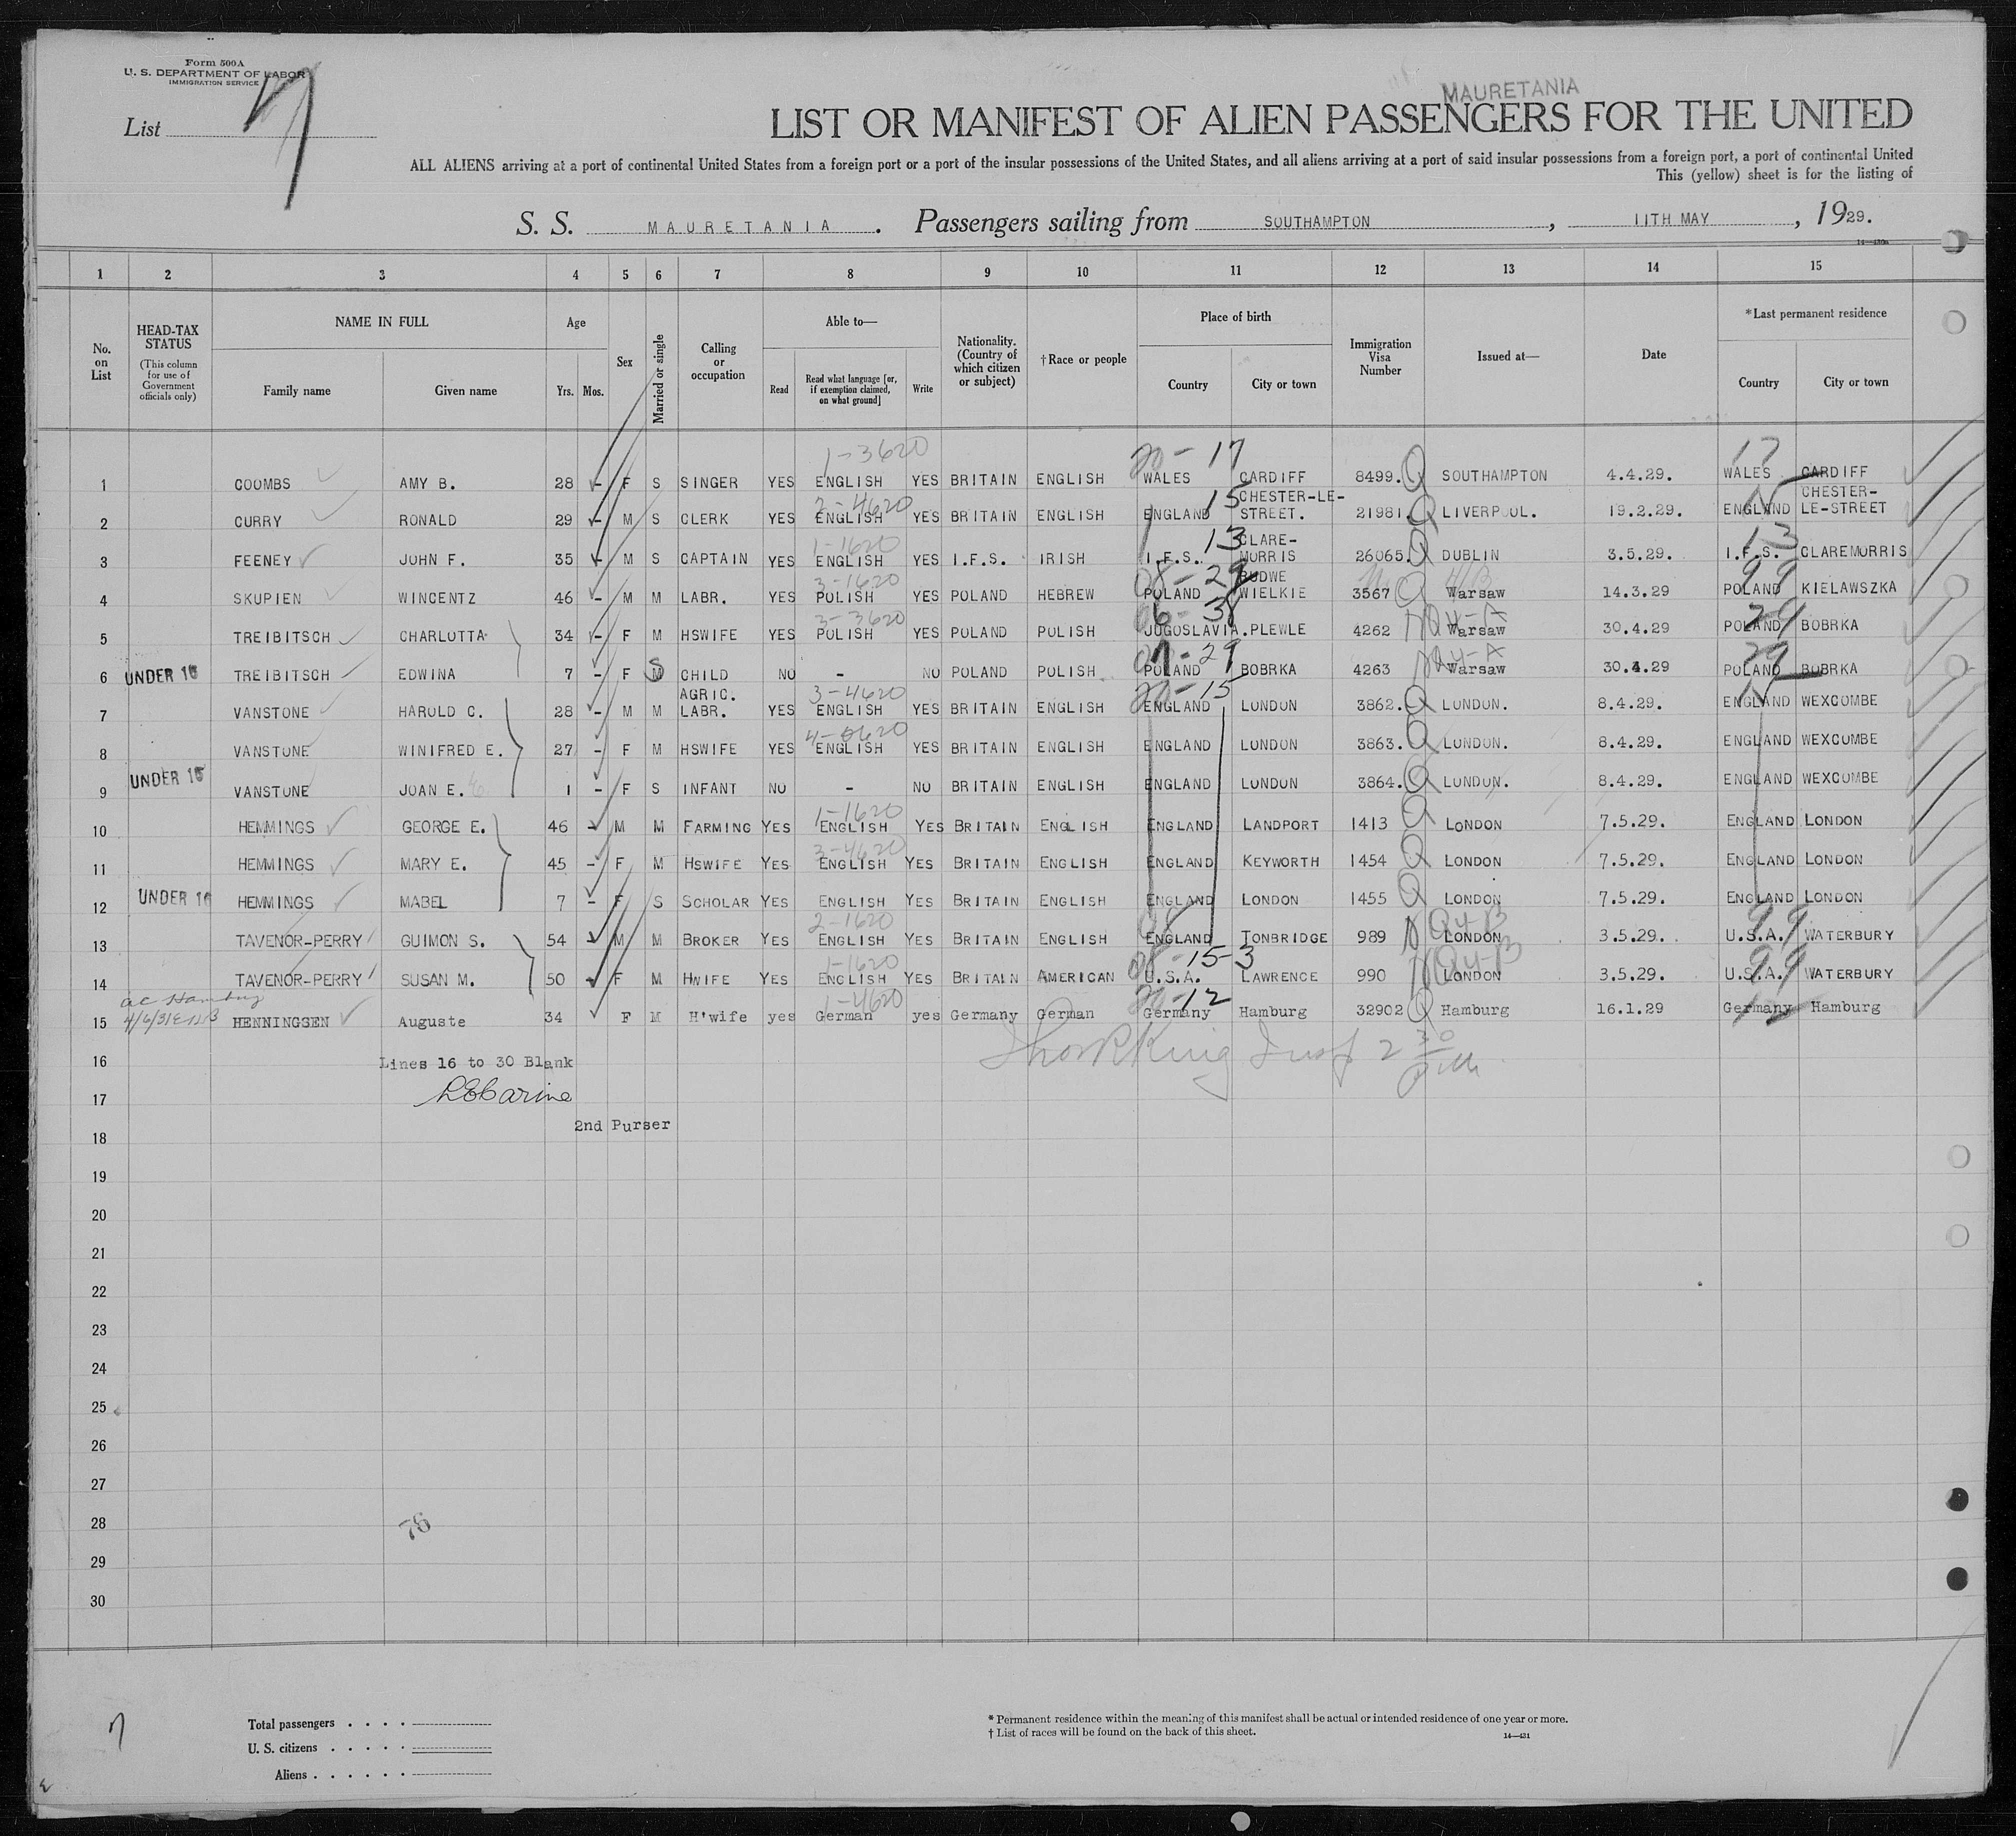 Form 500A
U. S. DEPARTMENT OF LABOR
IMMIGRATION SERVICE
List 7
MAURETANIA
LIST OR MANIFEST OF ALIEN PASSENGERS FOR THE UNITED
ALL ALIENS arriving at a port of continental United States from a foreign port or a port of the insular possessions of the United States, and all aliens arriving at a port of said insular possessions from a foreign port, a port of continental United
This (yellow) sheet is for the listing of
S. S. MAURETANIA. Passengers sailing from SOUTHAMPTON, 11TH MAY, 1929.
14—430a
1 2 3 4 5 6 7 8 9 10 11 12 13 14 15
No. on List
HEAD-TAX STATUS (This column for use of Government officials only)
NAME IN FULL
Family name Given name
Age
Yrs. Mos.
Sex
Married or single
Calling or occupation
Able to—
Read Read what language [or, if exemption claimed, on what ground] Write
Nationality. (Country of which citizen or subject)
†Race or people
Place of birth
Country City or town
Immigration Visa Number
Issued at—
Date
*Last permanent residence
Country City or town
1-3620 20-17 17
1 COOMBS AMY B. 28 - F S SINGER YES ENGLISH YES BRITAIN ENGLISH WALES CARDIFF 8499. Q SOUTHAMPTON 4.4.29. WALES CARDIFF
2-4620 15
2 CURRY RONALD 29 - M S CLERK YES ENGLISH YES BRITAIN ENGLISH ENGLAND CHESTER-LE-STREET. 21981. Q LIVERPOOL. 19.2.29. ENGLAND CHESTER-LE-STREET
1-1620 13 13
3 FEENEY JOHN F. 35 - M S CAPTAIN YES ENGLISH YES I.F.S. IRISH I.F.S. CLARE-MORRIS 26065. Q DUBLIN 3.5.29. I.F.S. CLAREMORRIS
3-1620 08-29 99
4 SKUPIEN WINCENTZ 46 - M M LABR. YES POLISH YES POLAND HEBREW POLAND RUDWE WIELKIE 3567 Q Warsaw 14.3.29 POLAND KIELAWSZKA
3-3620 06-38 29
5 TREIBITSCH CHARLOTTA 34 - F M HSWIFE YES POLISH YES POLAND POLISH JUGOSLAVIA. PLEWLE 4262 NQ4-A Warsaw 30.4.29 POLAND BOBRKA
29 29
6 UNDER 16 TREIBITSCH EDWINA 7 - F S CHILD NO - NO POLAND POLISH POLAND BOBRKA 4263 NQ4-A Warsaw 30.4.29 POLAND BOBRKA
3-4620 20-15
7 VANSTONE HAROLD C. 28 - M M AGRIC. LABR. YES ENGLISH YES BRITAIN ENGLISH ENGLAND LONDON 3862. Q LONDON. 8.4.29. ENGLAND WEXCOMBE
8 VANSTONE WINIFRED E. 27 - F M HSWIFE YES ENGLISH YES BRITAIN ENGLISH ENGLAND LONDON 3863. Q LONDON. 8.4.29. ENGLAND WEXCOMBE
9 UNDER 16 VANSTONE JOAN E. 1 - F S INFANT NO - NO BRITAIN ENGLISH ENGLAND LONDON 3864. Q LONDON. 8.4.29. ENGLAND WEXCOMBE
1-1620
10 HEMMINGS GEORGE E. 46 - M M FARMING YES ENGLISH YES BRITAIN ENGLISH ENGLAND LANDPORT 1413 Q LONDON 7.5.29. ENGLAND LONDON
3-4620
11 HEMMINGS MARY E. 45 - F M HSWIFE YES ENGLISH YES BRITAIN ENGLISH ENGLAND KEYWORTH 1454 Q LONDON 7.5.29. ENGLAND LONDON
12 UNDER 16 HEMMINGS MABEL 7 - F S SCHOLAR YES ENGLISH YES BRITAIN ENGLISH ENGLAND LONDON 1455 Q LONDON 7.5.29. ENGLAND LONDON
2-1620 08 99
13 TAVENOR-PERRY GUIMON S. 54 M M BROKER YES ENGLISH YES BRITAIN ENGLISH ENGLAND TONBRIDGE 989 NQ4-B LONDON 3.5.29. U.S.A. WATERBURY
1-1620 08-15-3 99
14 TAVENOR-PERRY SUSAN M. 50 F M HWIFE YES ENGLISH YES BRITAIN AMERICAN U.S.A. LAWRENCE 990 NQ4-B LONDON 3.5.29. U.S.A. WATERBURY
1-4620 20-12 12
15 HENNINGSEN Auguste 34 F M H'wife yes German yes Germany German Germany Hamburg 32902 Q Hamburg 16.1.29 Germany Hamburg
16 Lines 16 to 30 Blank
17
2nd Purser
18
19
20
21
22
23
24
25
26
27
28 76
29
30
7
Total passengers
U. S. citizens
Aliens
* Permanent residence within the meaning of this manifest shall be actual or intended residence of one year or more.
† List of races will be found on the back of this sheet.
14—431